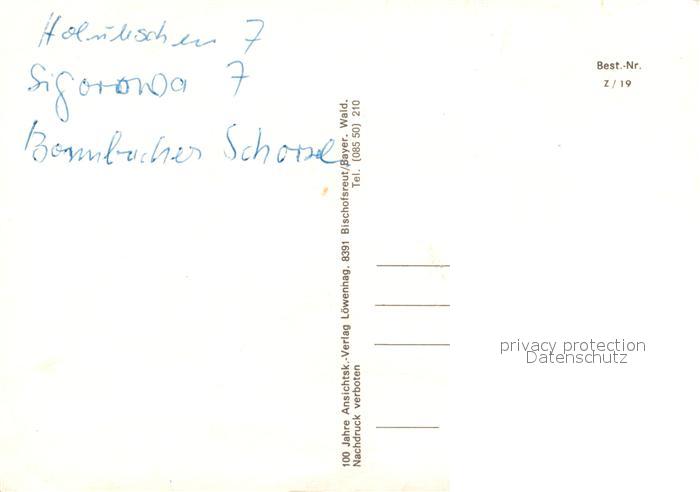 7
Sigorowa 7
Bormbacher Schorsel
Best.-Nr.
Z / 19
100 Jahre Ansichtsk.-Verlag Löwenhag, 8391 Bischofsreut/Bayer. Wald.
Tel. (085 50) 210
Nachdruck verboten
privacy protection
Datenschutz